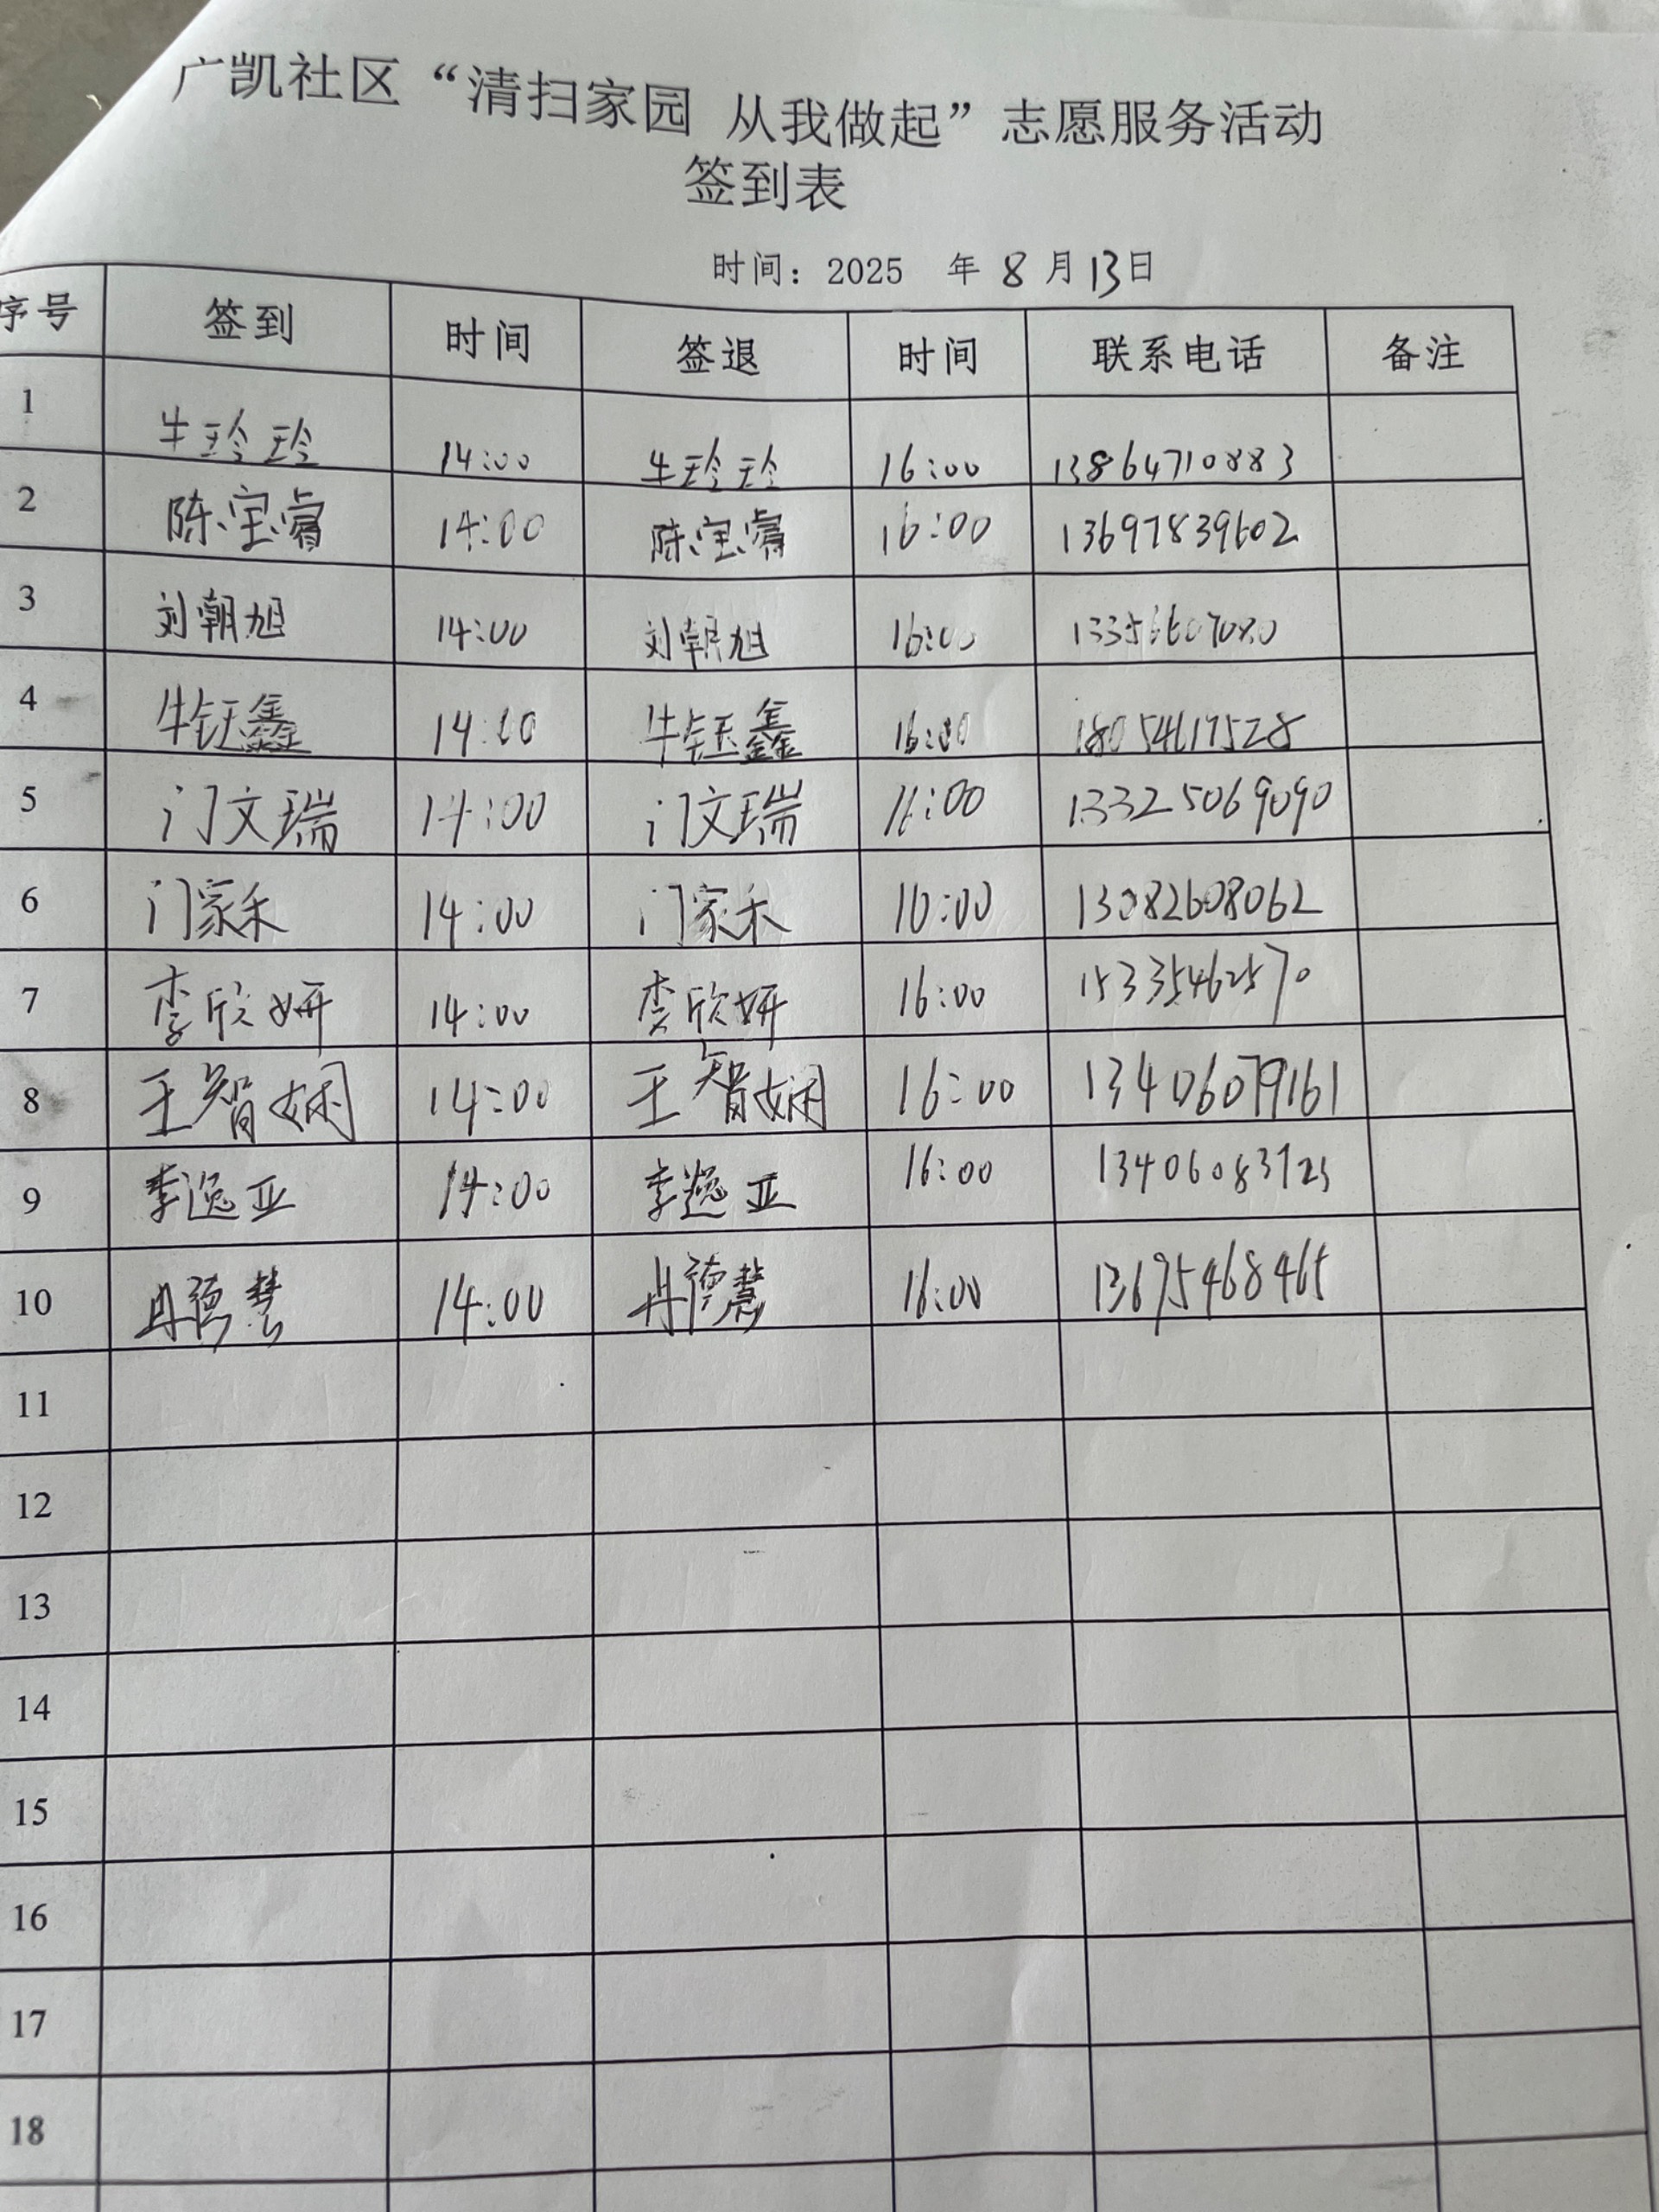 广凯社区“清扫家园 从我做起”志愿服务活动
签到表
时间：2025 年 8 月 13日
序号 签到 时间 签退 时间 联系电话 备注
1 牛玲玲 14:00 牛玲玲 16:00 13864710883
2 陈宝睿 14:00 陈宝睿 16:00 13697839602
3 刘朝旭 14:00 刘朝旭 16:00
4 牛钰鑫 14:00 牛钰鑫 16:00 18054617528
5 门文瑞 14:00 门文瑞 16:00 13325069090
6 门家禾 14:00 门家禾 16:00 13082608062
7 李欣妍 14:00 李欣妍 16:00 15335462570
8 王智娴 14:00 王智娴 16:00 13406079161
9 李逸亚 14:00 李逸亚 16:00
10 德慧 14:00 德慧 16:00 13695468465
11
12
13
14
15
16
17
18